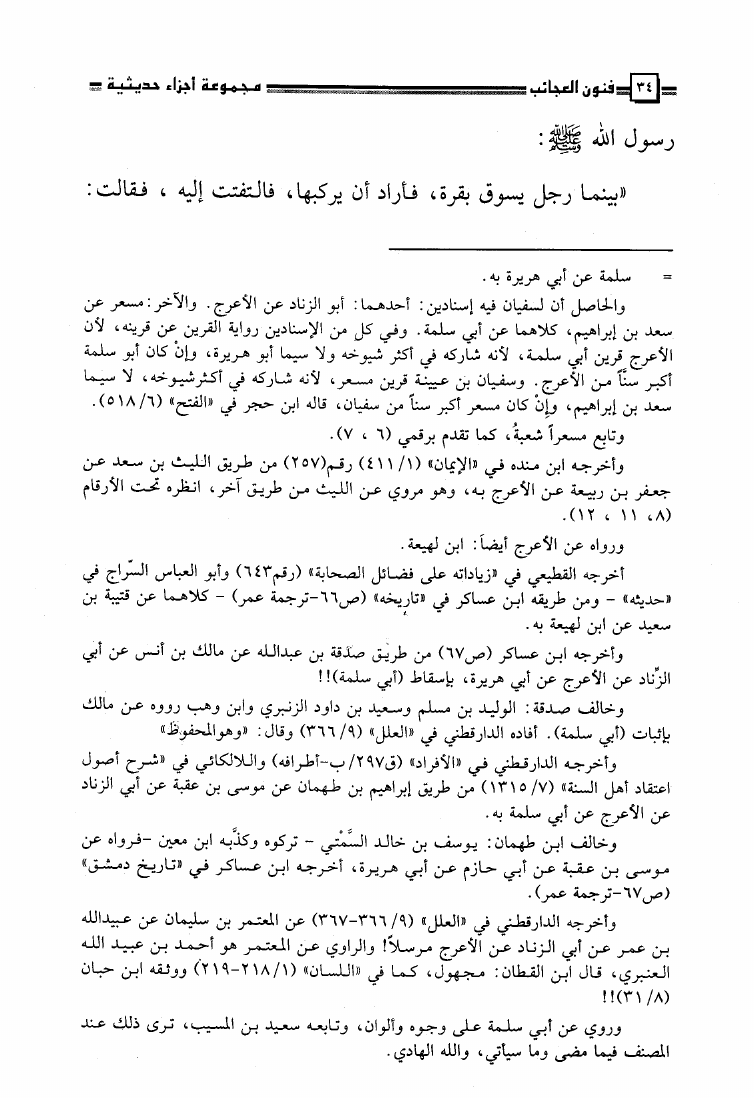 ٣٤ فنون العجائب مجموعة أجزاء حديثية
رسول الله ﷺ:
«بينما رجل يسوق بقرة، فأراد أن يركبها، فالتفتت إليه ، فقالت:
= سلمة عن أبي هريرة به.
والحاصل أن لسفيان فيه إسنادين: أحدهما: أبو الزناد عن الأعرج. والآخر: مسعر عن
سعد بن إبراهيم، كلاهما عن أبي سلمة. وفي كل من الإسنادين رواية القرين عن قرينه، لأن
الأعرج قرين أبي سلمة، لأنه شاركه في أكثر شيوخه ولا سيما أبو هريرة، وإنْ كان أبو سلمة
أكبر سنّاً من الأعرج. وسفيان بن عيينة قرين مسعر، لأنه شاركه في أكثر شيوخه، لا سيما
سعد بن إبراهيم، وإنْ كان مسعر أكبر سناً من سفيان، قاله ابن حجر في «الفتح» (٥١٨/٦).
وتابع مسعراً شعبةُ، كما تقدم برقمي (٦ ، ٧).
وأخرجه ابن منده في «الإيمان» (٤١١/١) رقم(٢٥٧) من طريق الليث بن سعد عن
جعفر بن ربيعة عن الأعرج به، وهو مروي عن الليث من طريق آخر، انظره تحت الأرقام
(٨، ١١ ، ١٢).
ورواه عن الأعرج أيضاً: ابن لهيعة.
أخرجه القطيعي في «زياداته على فضائل الصحابة» (رقم٦٤٣) وأبو العباس السّراج في
«حديثه» - ومن طريقه ابن عساكر في «تاريخه» (ص٦٦-ترجمة عمر) - كلاهما عن قتيبة بن
سعيد عن ابن لهيعة به.
وأخرجه ابن عساكر (ص٦٧) من طريق صدّقة بن عبدالله عن مالك بن أنس عن أبي
الزِّناد عن الأعرج عن أبي هريرة، بإسقاط (أبي سلمة)!!
وخالف صدقة: الوليد بن مسلم وسعيد بن داود الزنبري وابن وهب رووه عن مالك
بإثبات (أبي سلمة). أفاده الدارقطني في «العلل» (٣٦٦/٩) وقال: «وهوالمحفوظ»
وأخرجه الدارقطني في «الأفراد» (ق٢٩٧/ب-أطرافه) واللالكائي في «شرح أصول
اعتقاد أهل السنة» (١٣١٥/٧) من طريق إبراهيم بن طهمان عن موسى بن عقبة عن أبي الزناد
عن الأعرج عن أبي سلمة به.
وخالف ابن طهمان: يوسف بن خالد السَّمْتي - تركوه وكذَّبه ابن معين -فرواه عن
موسى بن عقبة عن أبي حازم عن أبي هريرة، أخرجه ابن عساكر في «تاريخ دمشق»
(ص٦٧-ترجمة عمر).
وأخرجه الدارقطني في «العلل» (٩/ ٣٦٦-٣٦٧) عن المعتمر بن سليمان عن عبيدالله
بن عمر عن أبي الزناد عن الأعرج مرسلاً! والراوي عن المعتمر هو أحمد بن عبيد الله
العنبري، قال ابن القطان: مجهول، كما في «اللسان» (٢١٨/١-٢١٩) ووثقه ابن حبان
(٣١/٨)!!
وروي عن أبي سلمة على وجوه وألوان، وتابعه سعيد بن المسيب، ترى ذلك عند
المصنف فيما مضى وما سيأتي، والله الهادي.